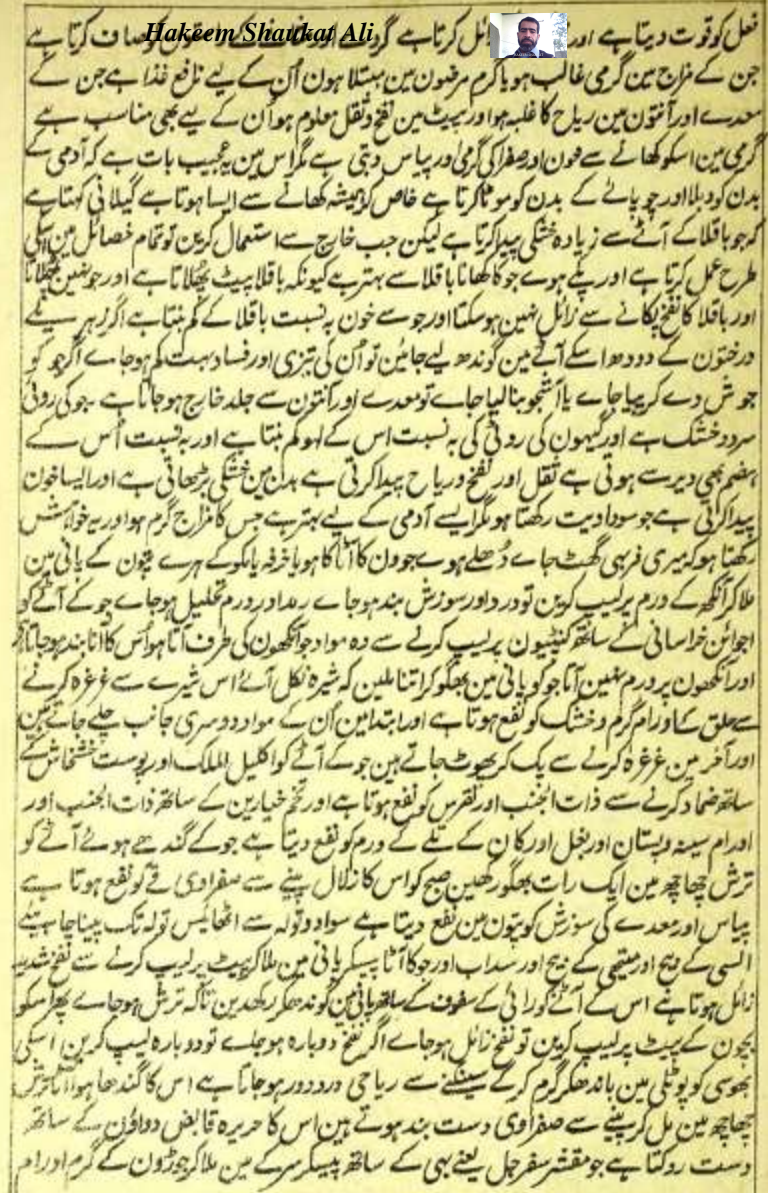 Hakeem Shaukat Ali
فعل کو قوت دیتا ہے اور زائل کرتا ہے
جن کے مزاج مین گرمی غالب ہو یا گرم مرضون مین مبتلا ہون اُن کے لیے نافع غذا ہے جن کے
معدے اور آنتون مین ریاح کا غلبہ ہو اور پیٹ مین نفخ و ثقل معلوم ہو اُن کے لیے بھی مناسب ہے
گرمی مین اسکو کھانے سے خون اور صفرا کی گرمی اور پیاس دبتی ہے مگر اس مین یہ عجیب بات ہے کہ آدمی کے
بدن کو دبلا اور چوپائے کے بدن کو موٹا کرتا ہے خاص کر ہمیشہ کھانے سے ایسا ہوتا ہے گیلانی کہتا ہے
کہ جو باقلا کے آٹے سے زیادہ خشکی پیدا کرتا ہے لیکن جب خارج سے استعمال کرین تو تمام خصائل مین اسکی
طرح عمل کرتا ہے اور پکے ہوے جو کا کھانا باقلا سے بہتر ہے کیونکہ باقلا پیٹ پھلاتا ہے اور جو نہین پھلاتا
اور باقلا کا نفخ پکانے سے زائل نہین ہو سکتا اور جو سے خون بہ نسبت باقلا کے کم بنتا ہے اگر زہریلے
درختون کے دودھ اسکے آٹے مین گوندھ لیے جائین تو اُن کی تیزی اور فساد بہت کم ہو جاے اگر جو کو
جوش دے کر پیا جاے یا آشجو بنا لیا جاے تو معدے اور آنتون سے جلد خارج ہو جاتا ہے جو کی روٹی
سرد و خشک ہے اور گیہون کی روٹی کی بہ نسبت اس کے لہو کم بنتا ہے اور بہ نسبت اُس کے
ہضم بھی دیر سے ہوتی ہے ثقل اور نفخ و ریاح پیدا کرتی ہے بدن مین خشکی بڑھاتی ہے اور ایسا خون
پیدا کرتی ہے جو سوداویت رکھتا ہو مگر ایسے آدمی کے لیے بہتر ہے جس کا مزاج گرم ہو اور یہ خواہش
رکھتا ہو کہ میری فربہی گھٹ جاے دُھلے ہوے جوون کا آٹا کاہو یا خرفہ یا مکو کے ہرے پتون کے پانی مین
ملا کر آنکھ کے ورم پر لیپ کرین تو درد اور سوزش بند ہو جاے رمد اور ورم تحلیل ہو جاے جو کے آٹے کو
اجوائن خراسانی کے ساتھ کنپٹیون پر لیپ کرنے سے وہ مواد جو آنکھون کی طرف آتا ہو اُس کا آنا بند ہو جاتا ہے
اور آنکھون پر ورم نہین آتا جو کو پانی مین بھگو کر اتنا ملین کہ شیرہ نکل آئے اس شیرے سے غرغرہ کرنے
سے حلق کے اورام گرم و خشک کو نفع ہوتا ہے اور ابتدا مین اُن کے مواد دوسری جانب چلے جاتے ہین
اور آخر مین غرغرہ کرنے سے پک کر پھوٹ جاتے ہین جو کے آٹے کو اکلیل الملک اور پوست خشخاش کے
ساتھ ضماد کرنے سے ذات الجنب اور نقرس کو نفع ہوتا ہے اور تخم خیارین کے ساتھ ذات الجنب اور
اورام سینہ و پستان اور بغل اور کان کے تلے کے ورم کو نفع دیتا ہے جو کے گندھے ہوئے آٹے کو
ترش چھاچھ مین ایک رات بھگو رکھین صبح کو اس کا زلال پینے سے صفراوی قے کو نفع ہوتا ہے
پیاس اور معدے کی سوزش کو نفع دیتا ہے سوا دو تولہ سے اٹھائیس تولہ تک پینا چاہیئے
السی کے بیج اور میتھی کے بیج اور سداب اور جو کا آٹا پیسکر پانی مین ملا کر پیٹ پر لیپ کرنے سے نفخ شدید
زائل ہوتا ہے اس کے آٹے کو رائی کے سفوف کے ساتھ پانی مین گوندھ کر رکھدین تاکہ ترش ہو جاے پھر اسکو
بچون کے پیٹ پر لیپ کرین تو نفخ زائل ہو جاے اگر نفخ دوبارہ ہو جاے تو دوبارہ لیپ کرین اسکی
بھوسی کو پوٹلی مین باندھکر گرم کرکے سینکنے سے ریاحی درد دور ہو جاتا ہے اس کا گندھا ہوا آٹا ترش
چھاچھ مین مل کر پینے سے صفراوی دست بند ہوتے ہین اس کا حریرہ قابض دواؤن کے ساتھ
دست روکتا ہے جو مقشر سفرجل یعنے بہی کے ساتھ پیسکر سرکے مین ملا کر جوڑون کے گرم اورام